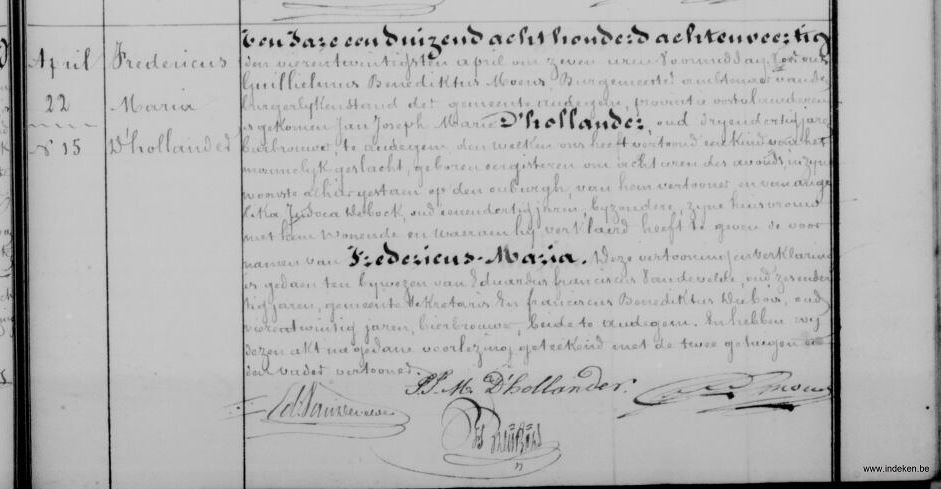 April
22
N° 15
Fredericus
Maria
D'hollander
Ten Jare een duizend acht honderd achtenveertig
den vierentwintigsten april om zeven uren voormiddag, voor ons
Guillielmus Benediktus Moens Burgemeester ambtenaar van de
burgerlyken stand der gemeente audegem, provintie oostvlaenderen
is gekomen Jan Joseph Marie D'hollander, oud dryendertig jaren
bierbrouwer, te audegem, den welken ons heeft vertoond een kind van het
mannelyk geslacht, geboren eergisteren om acht uren des avonds, in zyne
woonste alhier gestaen op den ouburgh, van hem vertooner, en van ange
lika Judoca Debock, oud eenendertig jaren, byzondere, zyne huisvrouw
met hem wonende en waeraen hy verklaerd heeft te geven de voor
namen van Fredericus-Maria. Deze vertooning en verklaring
is gedaen ten bywezen van Eduardus franciscus Vandevelde, oud zesender
tig jaren, gemeente Sekretaris En franciscus Benediktus Dubois, oud
vierentwintig jaren, bierbrouwer, beide te audegem. En hebben wy
dezen akt na gedane voorlezing geteekend met de twee getuigen en
den vader vertooner.
J.J.M. D'hollander.
Ed. Vandevelde
Moens
www.indeken.be